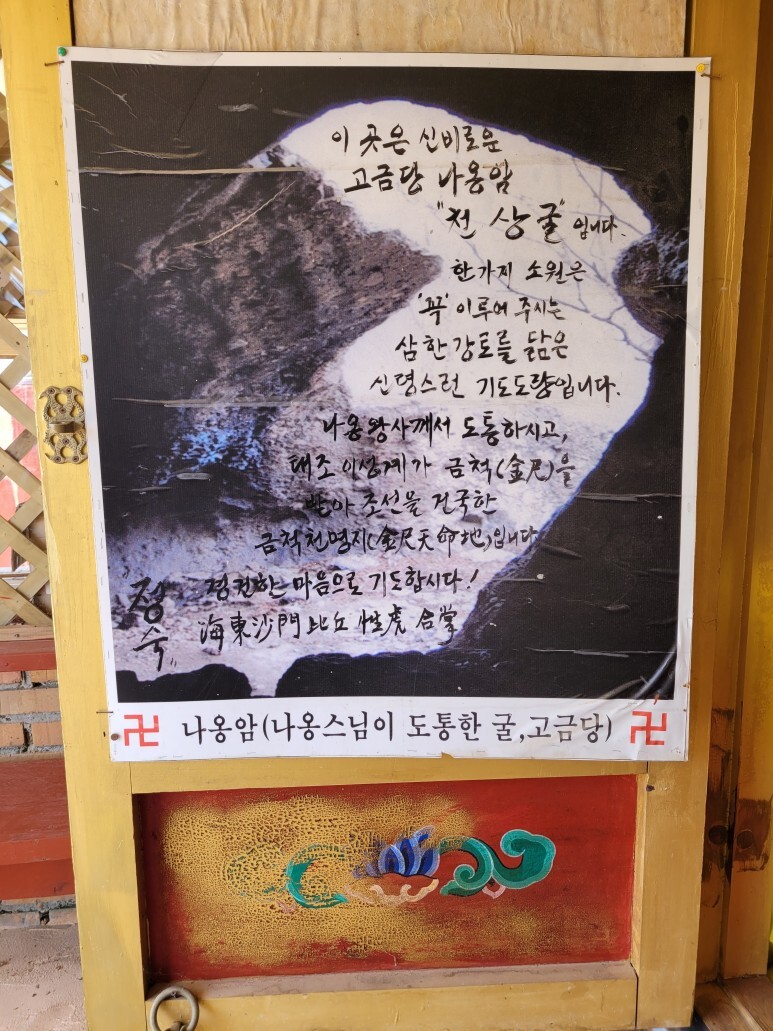 이 곳은 신비로운
고금당 나옹암
"천 상 굴" 입니다.
한가지 소원은
'꼭' 이루어 주시는
삼한강토를 닮은
신령스런 기도도량입니다.
나옹왕사께서 도통하시고,
태조 이성계가 금척(金尺)을
받아 조선을 건국한
금척천명지(金尺天命地)입니다
경건한 마음으로 기도합시다!
정숙
海東沙門 比丘 性虎 合掌
卍 나옹암(나옹스님이 도통한 굴,고금당) 卍